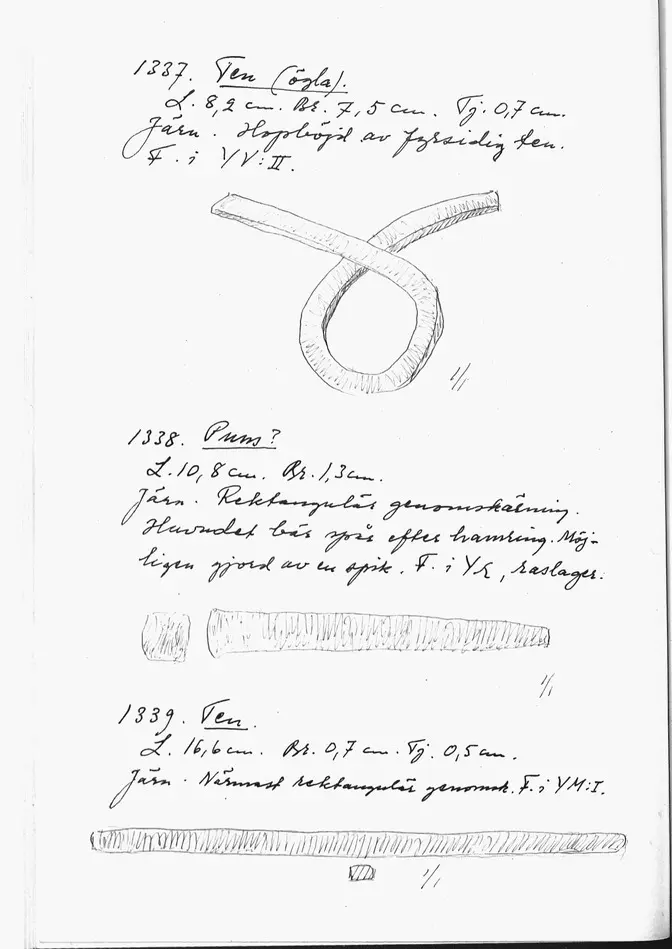 1337. Ten (ögla).
L. 8,2 cm. Br. 7,5 cm. Tj. 0,7 cm.
Järn. Hopböjd av fyrsidig ten.
F. i YV:II.
1/1
1338. Puns?
L. 10,8 cm. Br. 1,3 cm.
Järn. Rektangulär genomskärning.
Huvudet bär spår efter hamring. Möj-
ligen gjord av en spik. F. i YR, raslager.
1/1
1339. Ten.
L. 16,6 cm. Br. 0,7 cm. Tj. 0,5 cm.
Järn. Närmast rektangulär genomsk. F. i YM:I.
1/1